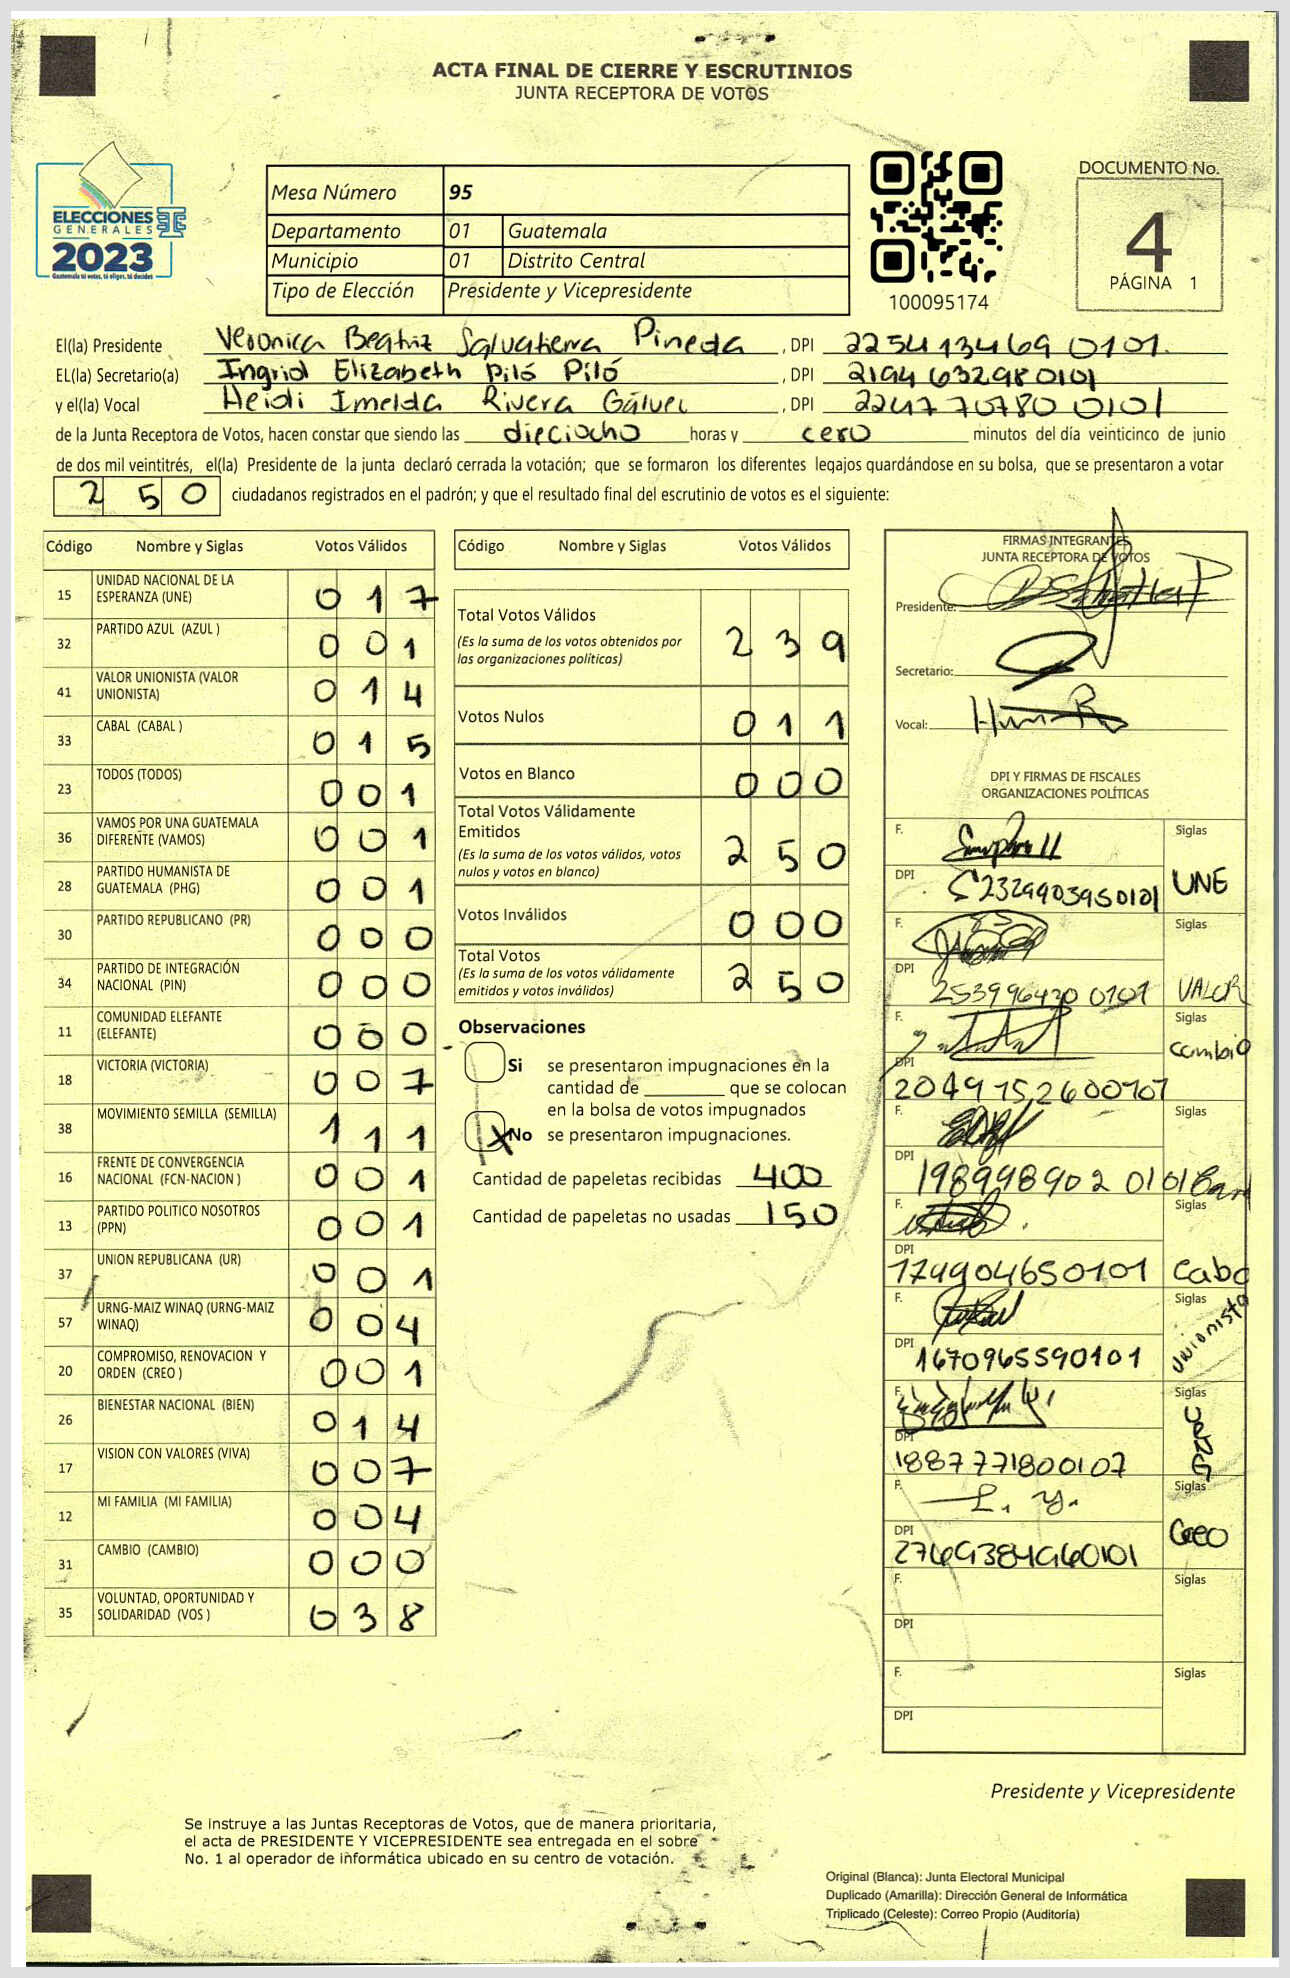 ACTA FINAL DE CIERRE Y ESCRUTINIOS
JUNTA RECEPTORA DE VOTOS
ELECCIONES
GENERALES
2023
Guatemala tú votas, tú eliges, tú decides
Mesa Número 95
Departamento 01 Guatemala
Municipio 01 Distrito Central
Tipo de Elección Presidente y Vicepresidente
100095174
DOCUMENTO No.
4
PÁGINA 1
El(la) Presidente Veronica Beatriz Salvatierra Pineda, DPI 2254134690101.
EL(la) Secretario(a) Ingrid Elizabeth Piló Piló, DPI 2194632980101
y el(la) Vocal Heidi Imelda Rivera Gálvez, DPI 2247707800101
de la Junta Receptora de Votos, hacen constar que siendo las dieciocho horas y cero minutos del día veinticinco de junio
de dos mil veintitrés, el(la) Presidente de la junta declaró cerrada la votación; que se formaron los diferentes legajos quardándose en su bolsa, que se presentaron a votar
250 ciudadanos registrados en el padrón; y que el resultado final del escrutinio de votos es el siguiente:
Código Nombre y Siglas Votos Válidos
15 UNIDAD NACIONAL DE LA ESPERANZA (UNE) 017
32 PARTIDO AZUL (AZUL ) 001
41 VALOR UNIONISTA (VALOR UNIONISTA) 014
33 CABAL (CABAL ) 015
23 TODOS (TODOS) 001
36 VAMOS POR UNA GUATEMALA DIFERENTE (VAMOS) 001
28 PARTIDO HUMANISTA DE GUATEMALA (PHG) 001
30 PARTIDO REPUBLICANO (PR) 000
34 PARTIDO DE INTEGRACIÓN NACIONAL (PIN) 000
11 COMUNIDAD ELEFANTE (ELEFANTE) 000
18 VICTORIA (VICTORIA) 007
38 MOVIMIENTO SEMILLA (SEMILLA) 111
16 FRENTE DE CONVERGENCIA NACIONAL (FCN-NACION ) 001
13 PARTIDO POLITICO NOSOTROS (PPN) 001
37 UNION REPUBLICANA (UR) 001
57 URNG-MAIZ WINAQ (URNG-MAIZ WINAQ) 004
20 COMPROMISO, RENOVACION Y ORDEN (CREO ) 001
26 BIENESTAR NACIONAL (BIEN) 014
17 VISION CON VALORES (VIVA) 007
12 MI FAMILIA (MI FAMILIA) 004
31 CAMBIO (CAMBIO) 000
35 VOLUNTAD, OPORTUNIDAD Y SOLIDARIDAD (VOS ) 038
Código Nombre y Siglas Votos Válidos
Total Votos Válidos 239
(Es la suma de los votos obtenidos por
las organizaciones políticas)
Votos Nulos 011
Votos en Blanco 000
Total Votos Válidamente
Emitidos 250
(Es la suma de los votos válidos, votos
nulos y votos en blanco)
Votos Inválidos 000
Total Votos 250
(Es la suma de los votos válidamente
emitidos y votos inválidos)
Observaciones
Si se presentaron impugnaciones en la
cantidad de ________ que se colocan
en la bolsa de votos impugnados
X No se presentaron impugnaciones.
Cantidad de papeletas recibidas 400
Cantidad de papeletas no usadas 150
FIRMAS INTEGRANTES
JUNTA RECEPTORA DE VOTOS
Presidente:
Secretario:
Vocal:
DPI Y FIRMAS DE FISCALES
ORGANIZACIONES POLÍTICAS
F. Siglas
DPI 2329903950101 UNE
F. Siglas
DPI 2539964200101 VALOR
F. Siglas
DPI 2049752600101 cambio
F. Siglas
DPI 1989989020101
F. Siglas
DPI 1749904650101 Caba
F. Siglas
DPI 1670965590101 Unionista
F. Siglas
DPI 1887771800107
F. Siglas
DPI 2769384960101 Creo
F. Siglas
DPI
F. Siglas
DPI
Presidente y Vicepresidente
Se instruye a las Juntas Receptoras de Votos, que de manera prioritaria,
el acta de PRESIDENTE Y VICEPRESIDENTE sea entregada en el sobre
No. 1 al operador de informática ubicado en su centro de votación.
Original (Blanca): Junta Electoral Municipal
Duplicado (Amarilla): Dirección General de Informática
Triplicado (Celeste): Correo Propio (Auditoría)